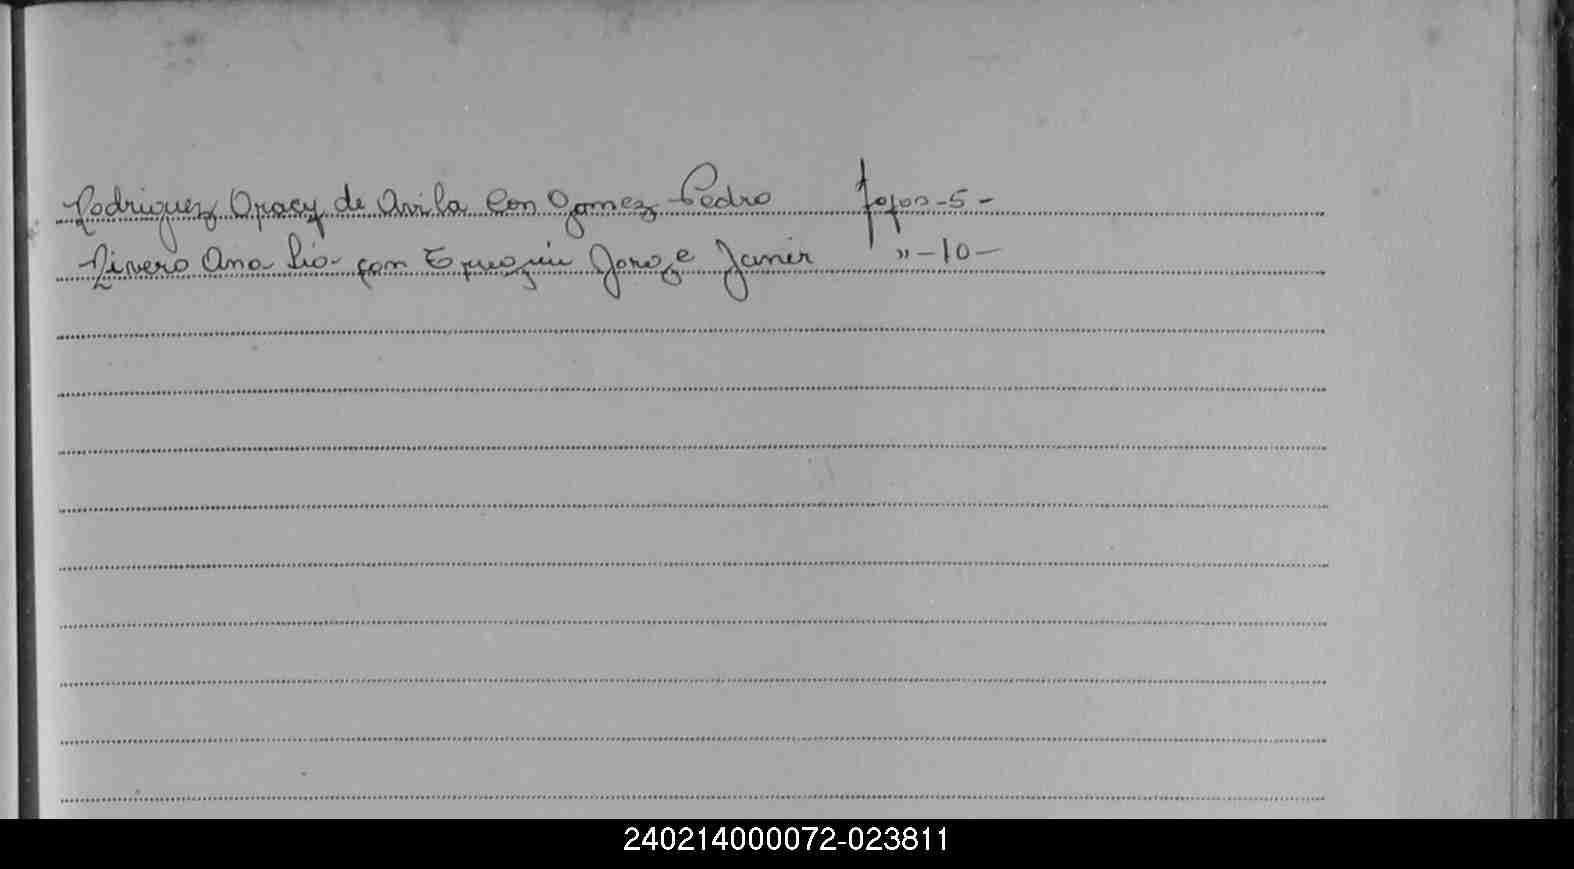 Rodriguez Aracy de Avila Con Gomez Pedro fojas - 5 -
Rivero Ana Lia con Jorge Javier " - 10 -
240214000072-023811